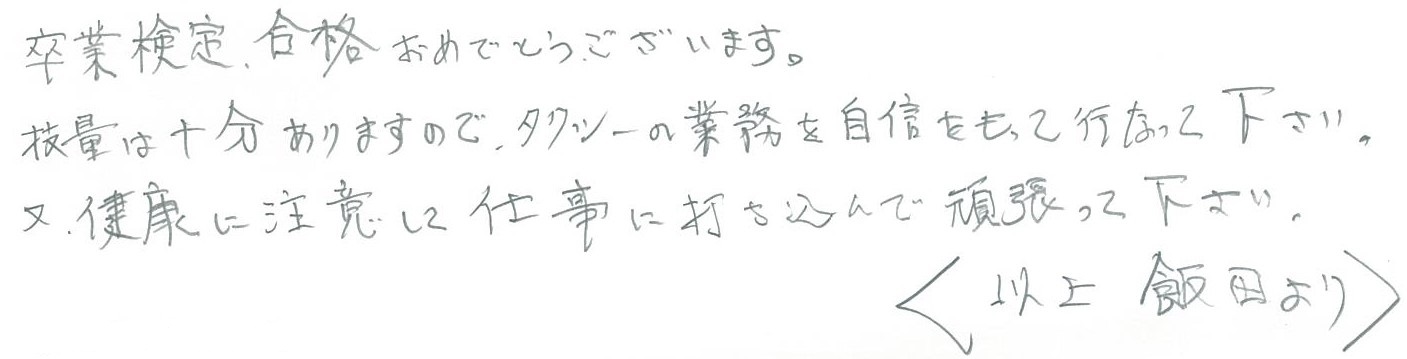 卒業検定、合格おめでとうございます。
技量は十分ありますので、タクシーの業務を自信をもって行なって下さい。
又、健康に注意して仕事に打ち込んで頑張って下さい。
＜以上 飯田より＞